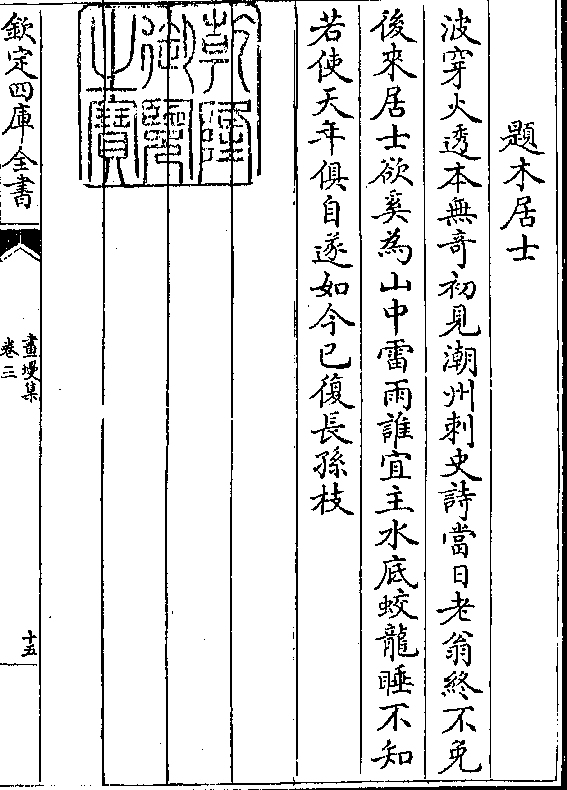 題木居士
波穿火透本無奇初見潮州刺史詩當日老翁終不免
後來居士欲奚為山中雷雨誰宜主水底蛟龍睡不知
若使天年俱自遂如今已復長孫枝
乾隆
御覽
之寶
欽定四庫全書
畫墁集
卷三
十五